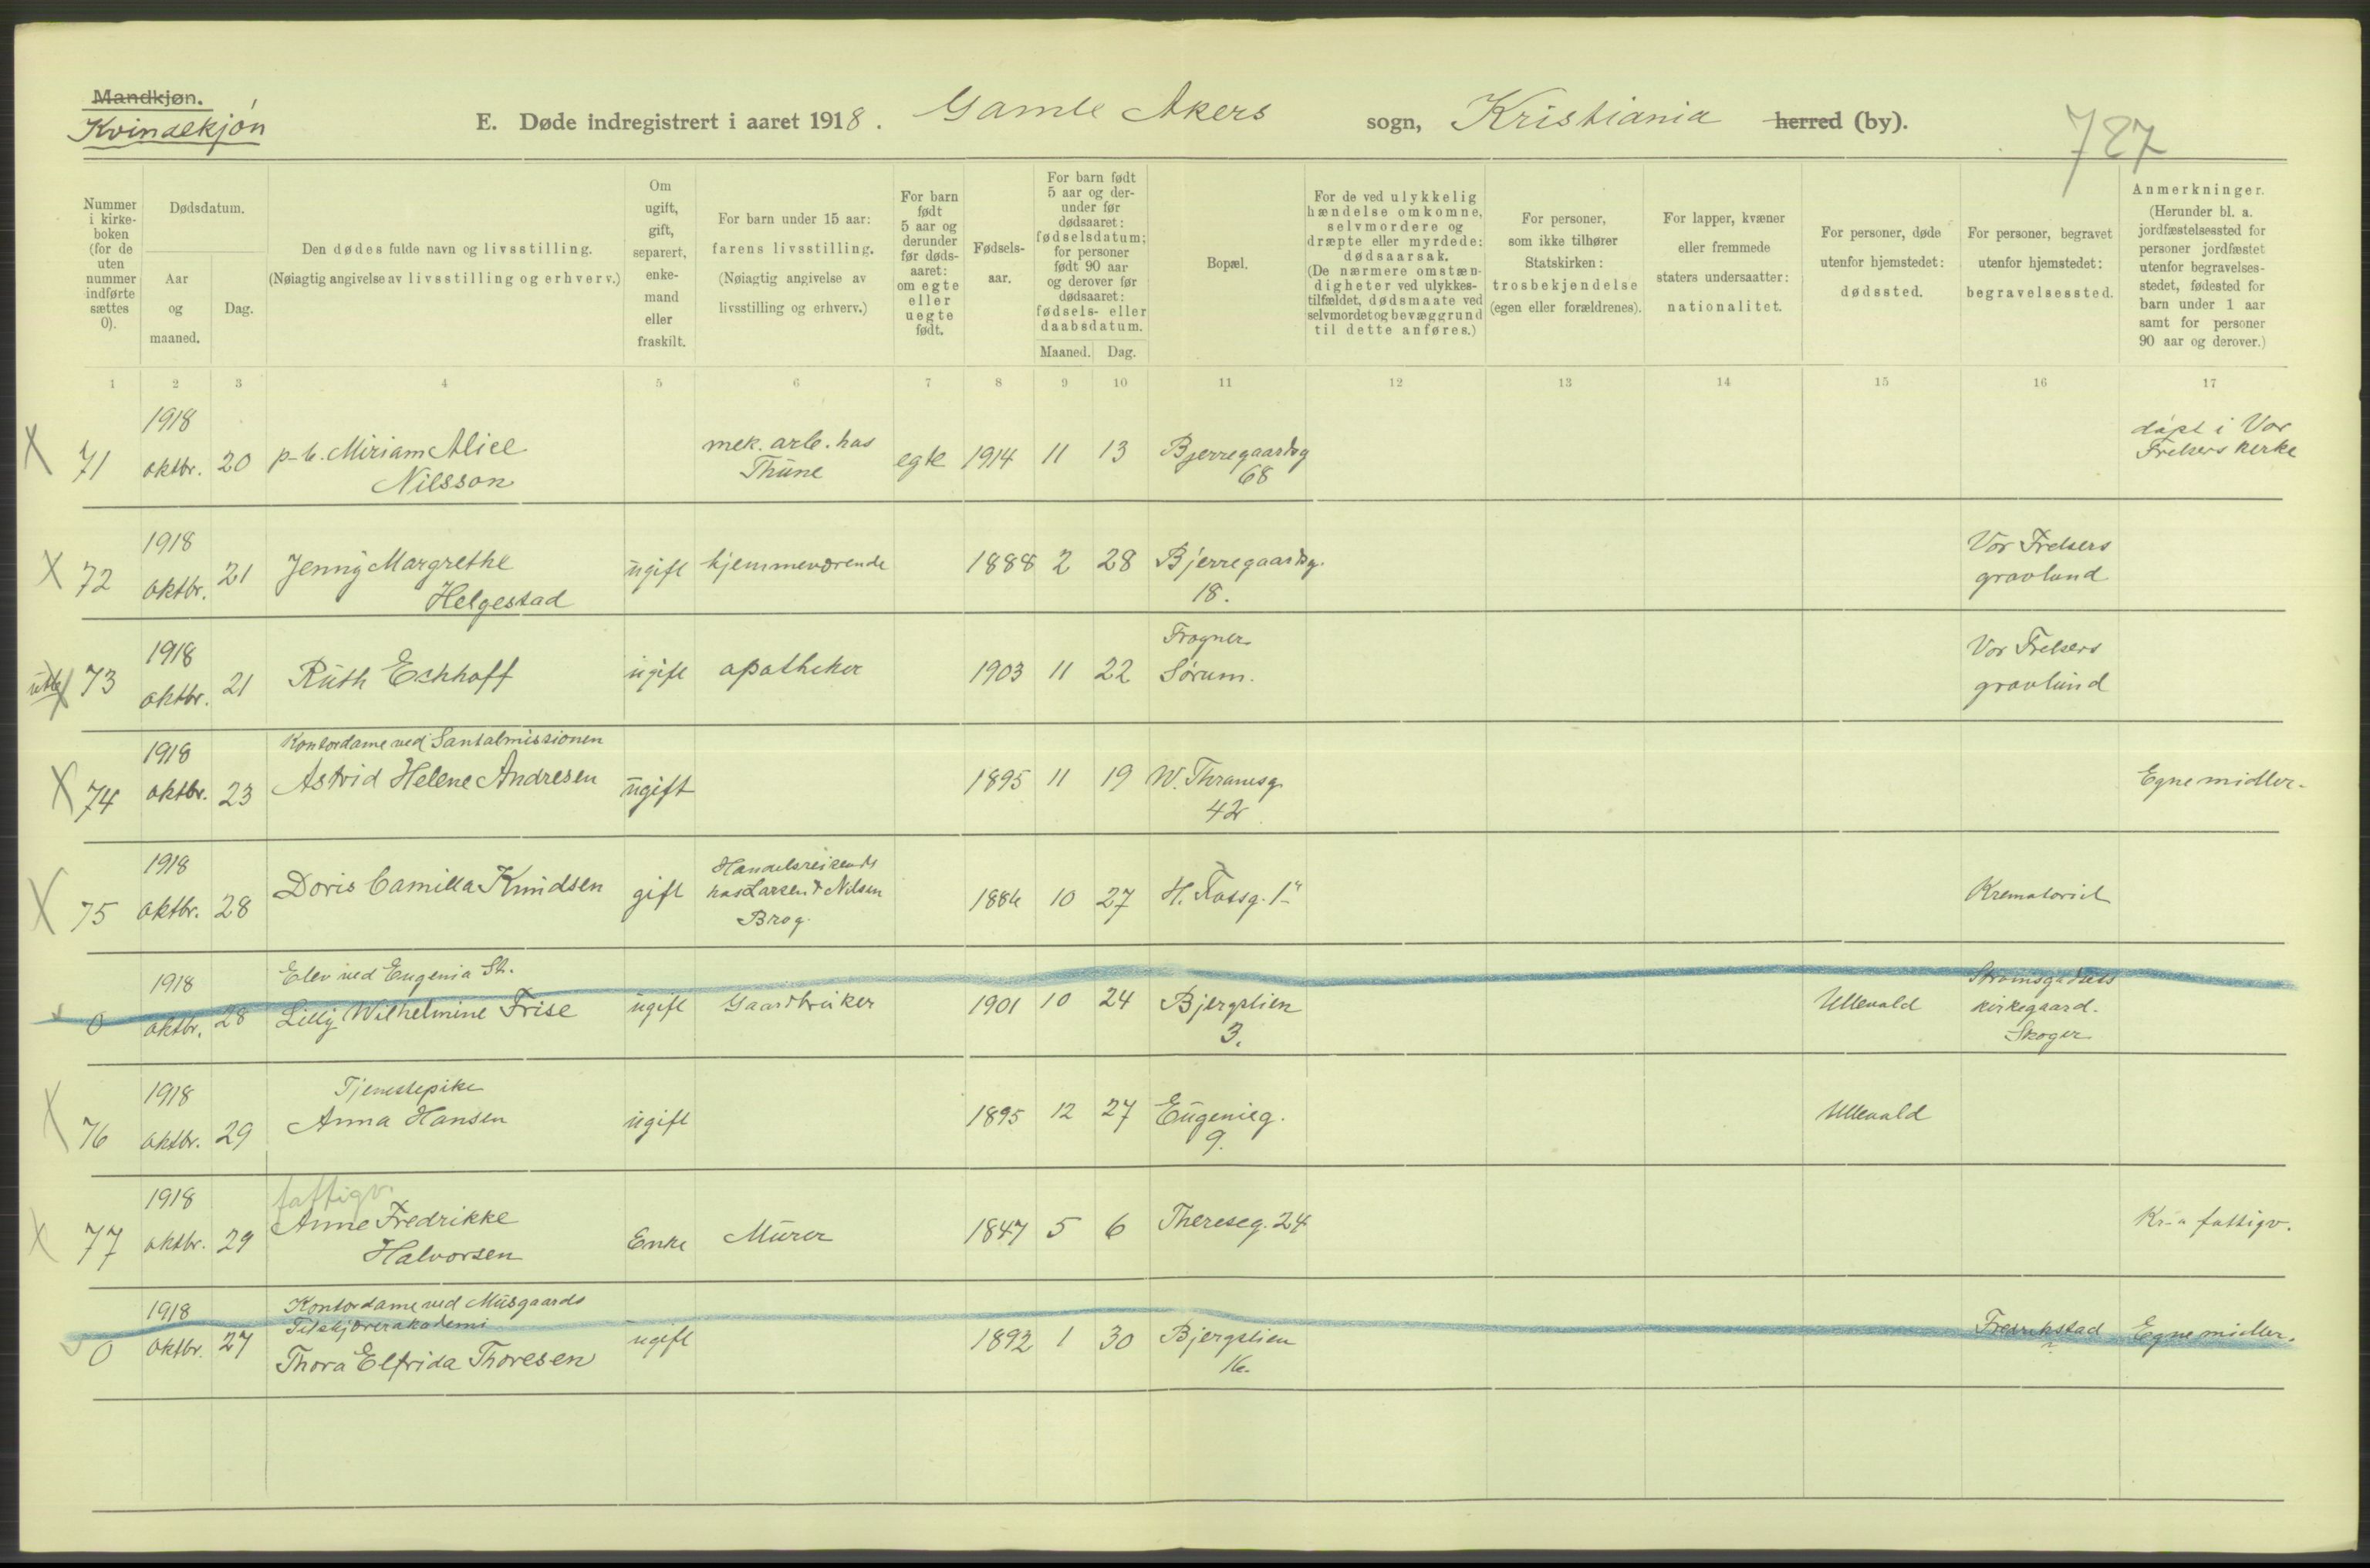 Mandkjøn.
Kvindekjøn
E. Døde indregistrert i aaret 1918. Gamle Akers sogn, Kristiania herred (by).
727
Nummer i kirke- boken (for de uten nummer indførte sættes 0).
Dødsdatum.
Aar og maaned.
Dag.
Den dødes fulde navn og livsstilling.
(Nøiagtig angivelse av livsstilling og erhverv.)
Om ugift, gift, separert, enke- mand eller fraskilt.
For barn under 15 aar: farens livsstilling. (Nøiagtig angivelse av livsstilling og erhverv.)
For barn født 5 aar og derunder før døds- aaret: om egte eller uegte født.
Fødsels- aar.
For barn født 5 aar og der- under før dødsaaret: fødselsdatum; for personer født 90 aar og derover før dødsaaret: fødsels- eller daabsdatum.
Maaned. Dag.
Bopæl.
For de ved ulykkelig hændelse omkomne, selvmordere og dræpte eller myrdede: dødsaarsak. (De nærmere omstæn- digheter ved ulykkes- tilfældet, dødsmaate ved selvmordet og bevæggrund til dette anføres.)
For personer, som ikke tilhører Statskirken: trosbekjendelse (egen eller forældrenes).
For lapper, kvæner eller fremmede staters undersaatter: nationalitet.
For personer, døde utenfor hjemstedet: dødssted.
For personer, begravet utenfor hjemstedet: begravelsessted.
Anmerkninger. (Herunder bl. a. jordfæstelsessted for personer jordfæstet utenfor begravelses- stedet, fødested for barn under 1 aar samt for personer 90 aar og derover.)
1 2 3 4 5 6 7 8 9 10 11 12 13 14 15 16 17
X 71 1918 oktbr. 20 p-b. Miriam Alice Nilsson mek. arb. hos Thune egte 1914 11 13 Bjerregaardsg 68 døpt i Vor Frelsers kirke
X 72 1918 oktbr. 21 Jenny Margrethe Helgestad ugift hjemmeværende 1888 2 28 Bjerregaardsg. 18. Vor Frelsers gravlund
73 1918 oktbr. 21 Ruth Eckhoff ugift apotheker 1903 11 22 Frogner Sørum. Vor Frelsers gravlund
X 74 1918 oktbr. 23 Kontordame ved Santalmissionen Astrid Helene Andresen ugift 1895 11 19 W. Thranesg. 42 Egne midler.
X 75 1918 oktbr. 28 Doris Camilla Knudsen gift Handelsreisende hos Larsen & Nilsen Brog. 1886 10 27 Krematoriet
0 1918 oktbr. 28 Elev ved Eugenia St. Lilly Wilhelmine Frise ugift Gaardbruker 1901 10 24 Bjergslien 3. Ullevald Strømsgodsets kirkegaard. Skoger
X 76 1918 oktbr. 29 Tjenestepike Anna Hansen ugift 1895 12 27 Eugenieg. 9. Ullevald
X 77 1918 oktbr. 29 fattigv. Anne Fredrikke Halvorsen Enke Murer 1847 5 6 Thereseg. 24 Kr-a fattigv.
0 1918 oktbr. 27 Kontordame ved Musgaards Tilskjærerakademi Thora Elfrida Thoresen ugift 1892 1 30 Bjergslien 16. Fredrikstad Egne midler.